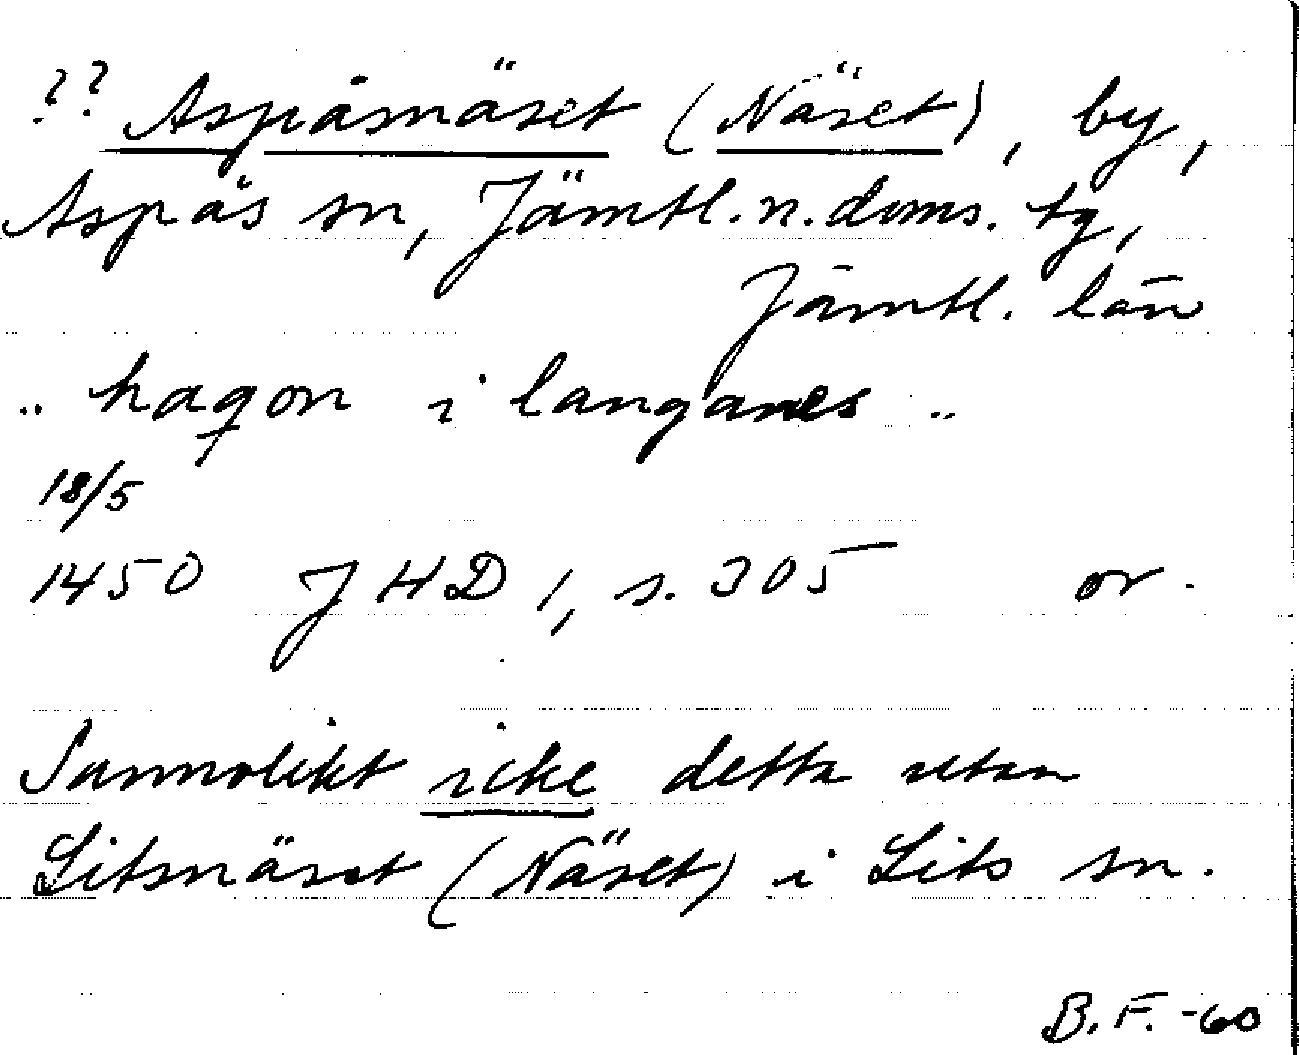 ?? Aspåsnäset (Näset), by,
Aspås sn, Jämtl. n. doms. tg,
Jämtl. län
.. haqon i langanes ..
18/5
1450 JHD 1, s. 305 or.
Sannolikt icke detta utan
Litsnäset (Näset) i Lits sn.
B.F. -60